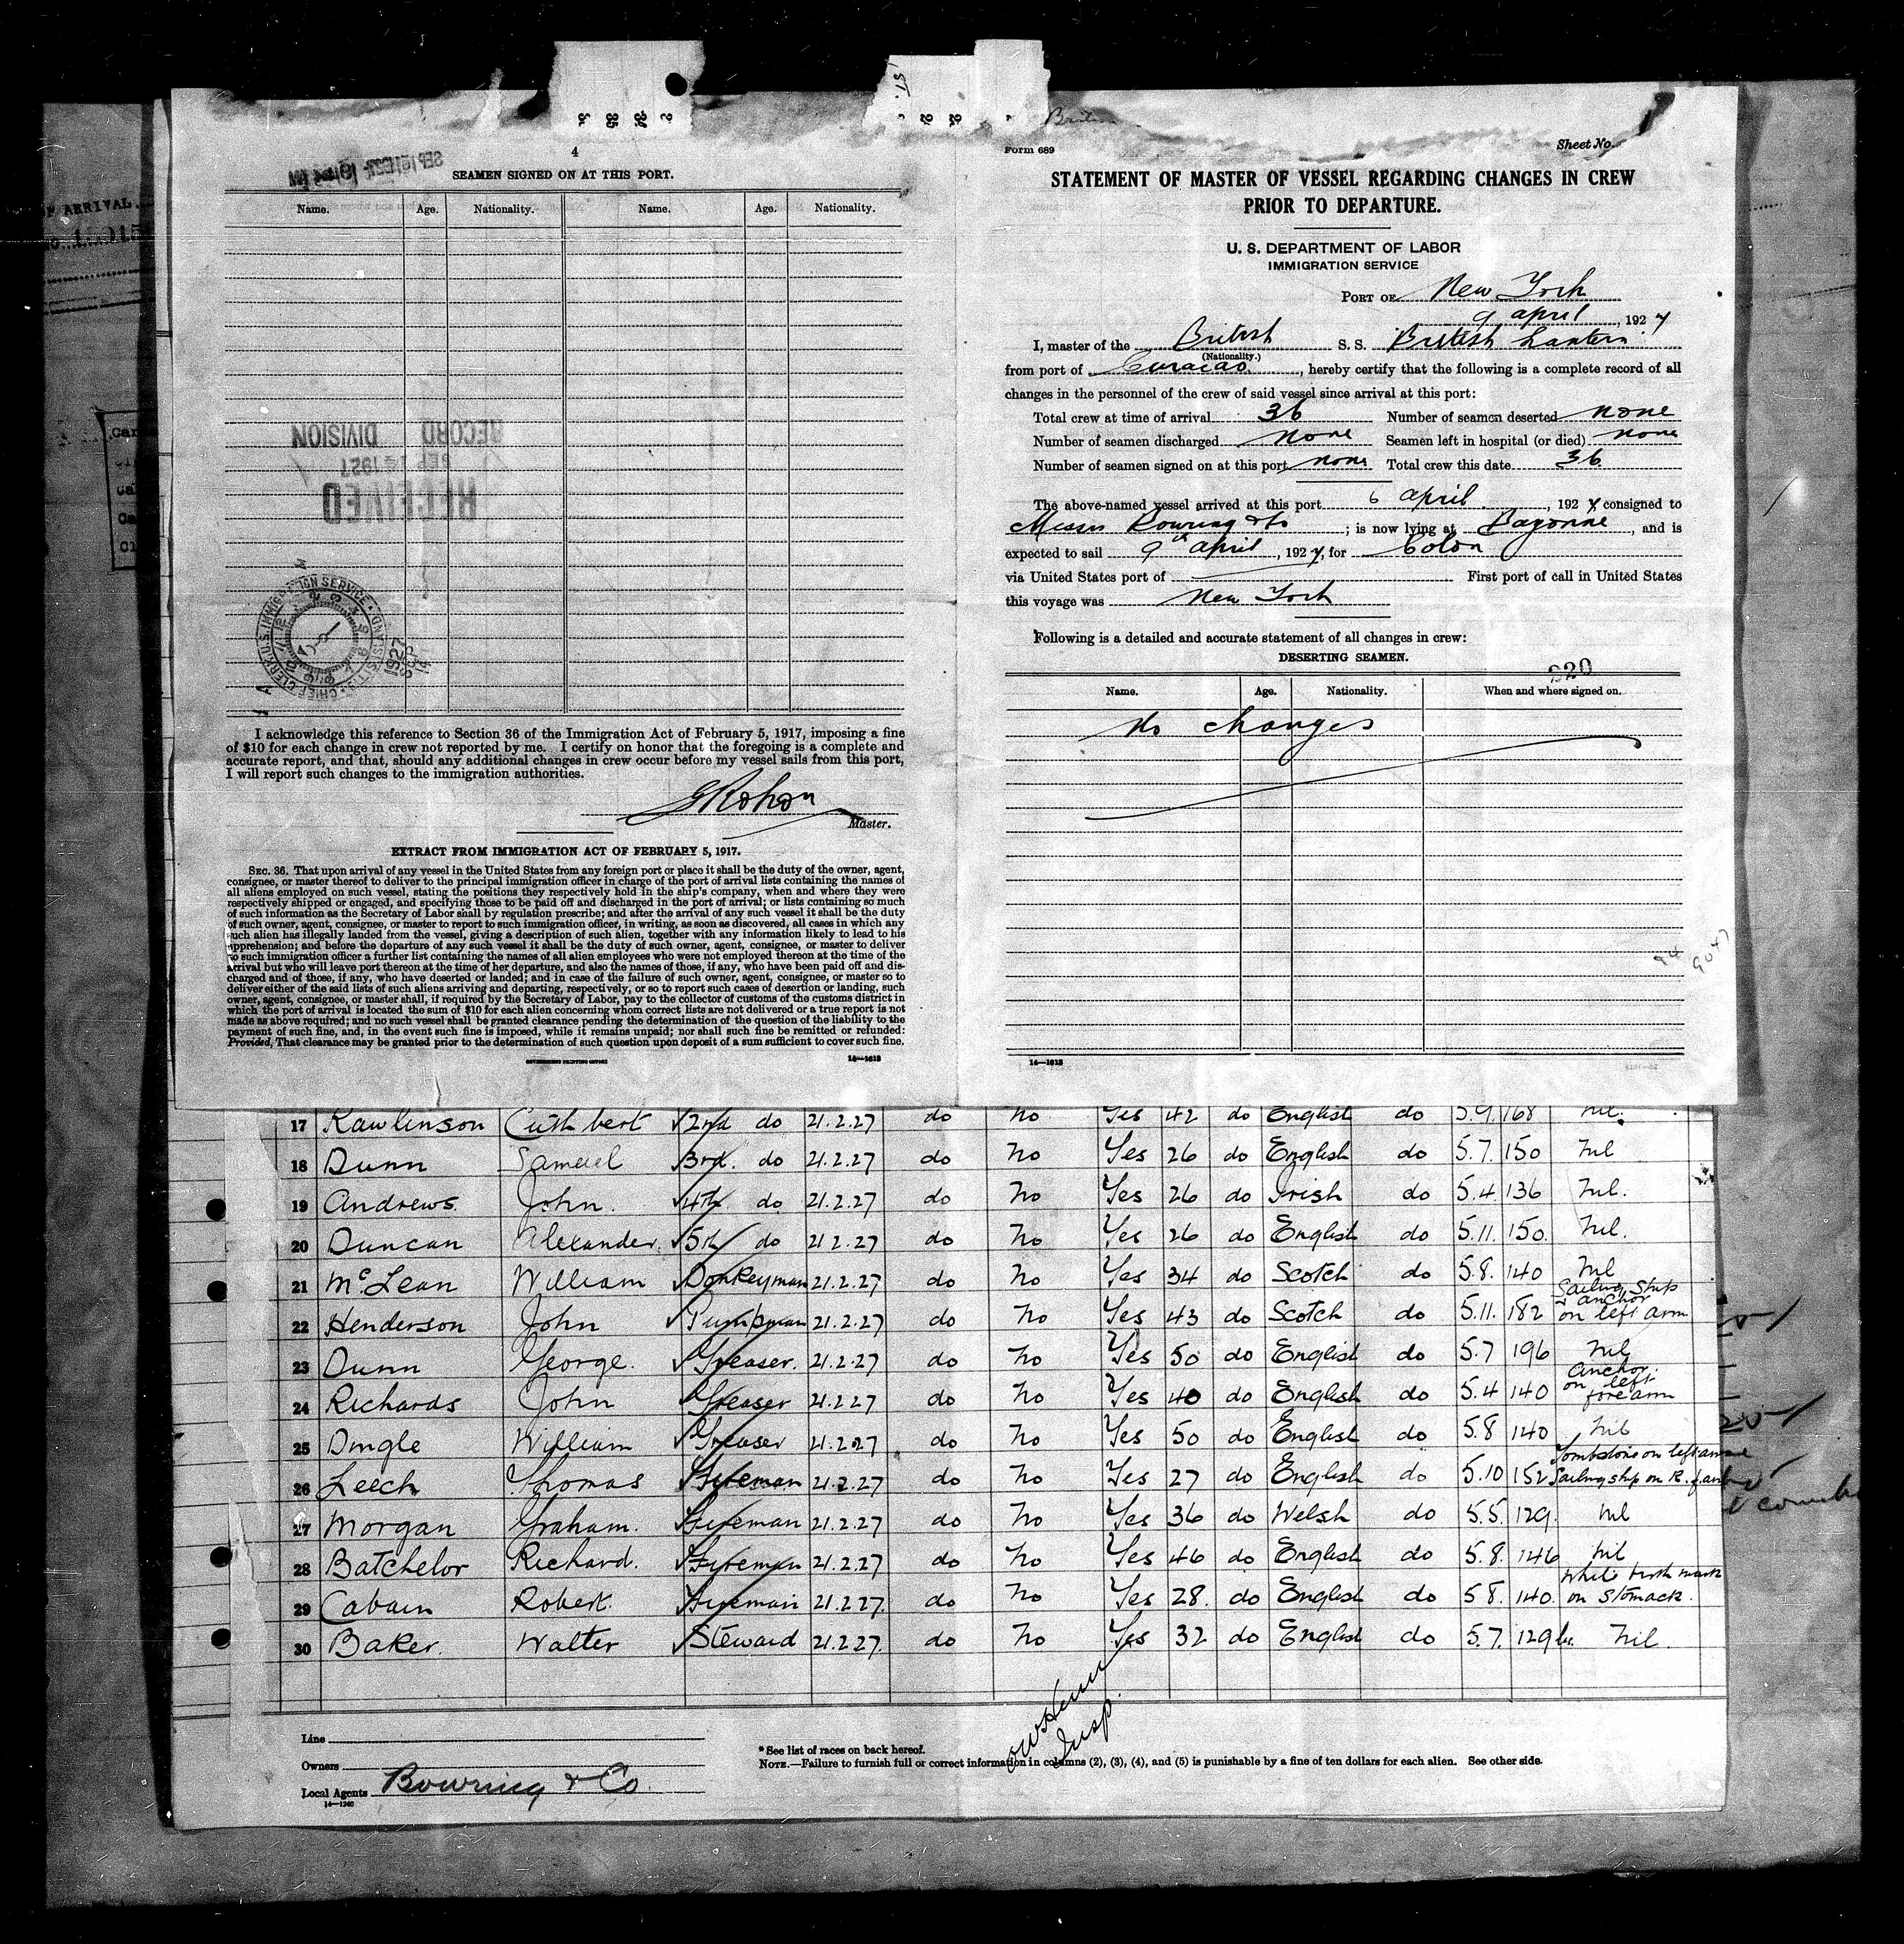 4
SEAMEN SIGNED ON AT THIS PORT.
Name. Age. Nationality. Name. Age. Nationality.
RECORD DIVISION
SEP 14 1927
RECEIVED
I acknowledge this reference to Section 36 of the Immigration Act of February 5, 1917, imposing a fine
of $10 for each change in crew not reported by me. I certify on honor that the foregoing is a complete and
accurate report, and that, should any additional changes in crew occur before my vessel sails from this port,
I will report such changes to the immigration authorities.
Master.
EXTRACT FROM IMMIGRATION ACT OF FEBRUARY 5, 1917.
SEC. 36. That upon arrival of any vessel in the United States from any foreign port or place it shall be the duty of the owner, agent,
consignee, or master thereof to deliver to the principal immigration officer in charge of the port of arrival lists containing the names of
all aliens employed on such vessel, stating the positions they respectively hold in the ship's company, when and where they were
respectively shipped or engaged, and specifying those to be paid off and discharged in the port of arrival; or lists containing so much
of such information as the Secretary of Labor shall by regulation prescribe; and after the arrival of any such vessel it shall be the duty
of such owner, agent, consignee, or master to report to such immigration officer, in writing, as soon as discovered, all cases in which any
such alien has illegally landed from the vessel, giving a description of such alien, together with any information likely to lead to his
apprehension; and before the departure of any such vessel it shall be the duty of such owner, agent, consignee, or master to deliver
to such immigration officer a further list containing the names of all alien employees who were not employed thereon at the time of the
arrival but who will leave port thereon at the time of her departure, and also the names of those, if any, who have been paid off and dis-
charged and of those, if any, who have deserted or landed; and in case of the failure of such owner, agent, consignee, or master so to
deliver either of the said lists of such aliens arriving and departing, respectively, or so to report such cases of desertion or landing, such
owner, agent, consignee, or master shall, if required by the Secretary of Labor, pay to the collector of customs of the customs district in
which the port of arrival is located the sum of $10 for each alien concerning whom correct lists are not delivered or a true report is not
made as above required; and no such vessel shall be granted clearance pending the determination of the question of the liability to the
payment of such fine, and, in the event such fine is imposed, while it remains unpaid; nor shall such fine be remitted or refunded:
Provided, That clearance may be granted prior to the determination of such question upon deposit of a sum sufficient to cover such fine.
GOVERNMENT PRINTING OFFICE 14—1613
Form 689 Sheet No.
STATEMENT OF MASTER OF VESSEL REGARDING CHANGES IN CREW
PRIOR TO DEPARTURE.
U. S. DEPARTMENT OF LABOR
IMMIGRATION SERVICE
PORT OF New York
9 april, 1927
I, master of the British S. S. British Lantern
(Nationality.)
from port of Curacao, hereby certify that the following is a complete record of all
changes in the personnel of the crew of said vessel since arrival at this port:
Total crew at time of arrival 36 Number of seamen deserted none
Number of seamen discharged none Seamen left in hospital (or died) none
Number of seamen signed on at this port none Total crew this date 36
The above-named vessel arrived at this port 6 april, 1927, consigned to
Messrs Bowring & Co; is now lying at Bayonne, and is
expected to sail 9th april, 1927, for Colon
via United States port of First port of call in United States
this voyage was New York
Following is a detailed and accurate statement of all changes in crew:
DESERTING SEAMEN.
920
Name. Age. Nationality. When and where signed on.
No changes
14—1613
17 Rawlinson Cuthbert 2nd do 21.2.27 do No Yes 42 do English do 5.9. 168 Nil.
18 Dunn Samuel 3rd. do 21.2.27 do No Yes 26 do English do 5.7. 150 Nil
19 Andrews. John. 4th do 21.2.27 do No Yes 26 do Irish do 5.4. 136 Nil.
20 Duncan Alexander. 5th do 21.2.27 do No Yes 26 do English do 5.11. 150. Nil.
21 McLean William Donkeyman 21.2.27 do No Yes 34 do Scotch do 5.8. 140 Nil
22 Henderson John Pumpman 21.2.27 do No Yes 43 do Scotch do 5.11. 182 Sailing Ship & anchor on left arm
23 Dunn George. Greaser. 21.2.27 do No Yes 50 do English do 5.7 196 Nil
24 Richards John Greaser 21.2.27 do No Yes 40 do English do 5.4 140 Anchor on left forearm
25 Dingle William Greaser 21.2.27 do No Yes 50 do English do 5.8 140 Nil
26 Leech Thomas Fireman 21.2.27 do No Yes 27 do English do 5.10 152 Tombstone on left arm Sailing ship on R.
27 Morgan Graham. Fireman 21.2.27 do No Yes 36 do Welsh do 5.5. 129. Nil
28 Batchelor Richard. Fireman 21.2.27 do No Yes 46 do English do 5.8. 146 Nil
29 Cabain Robert. Fireman 21.2.27. do No Yes 28. do English do 5 8. 140. White birth mark on Stomack.
30 Baker. Walter Steward 21.2.27. do No Yes 32 do English do 5.7. 129 Nil.
Insp.
Line
Owners
Local Agents Bowring & Co.
14—1240
* See list of races on back hereof.
NOTE.—Failure to furnish full or correct information in columns (2), (3), (4), and (5) is punishable by a fine of ten dollars for each alien. See other side.